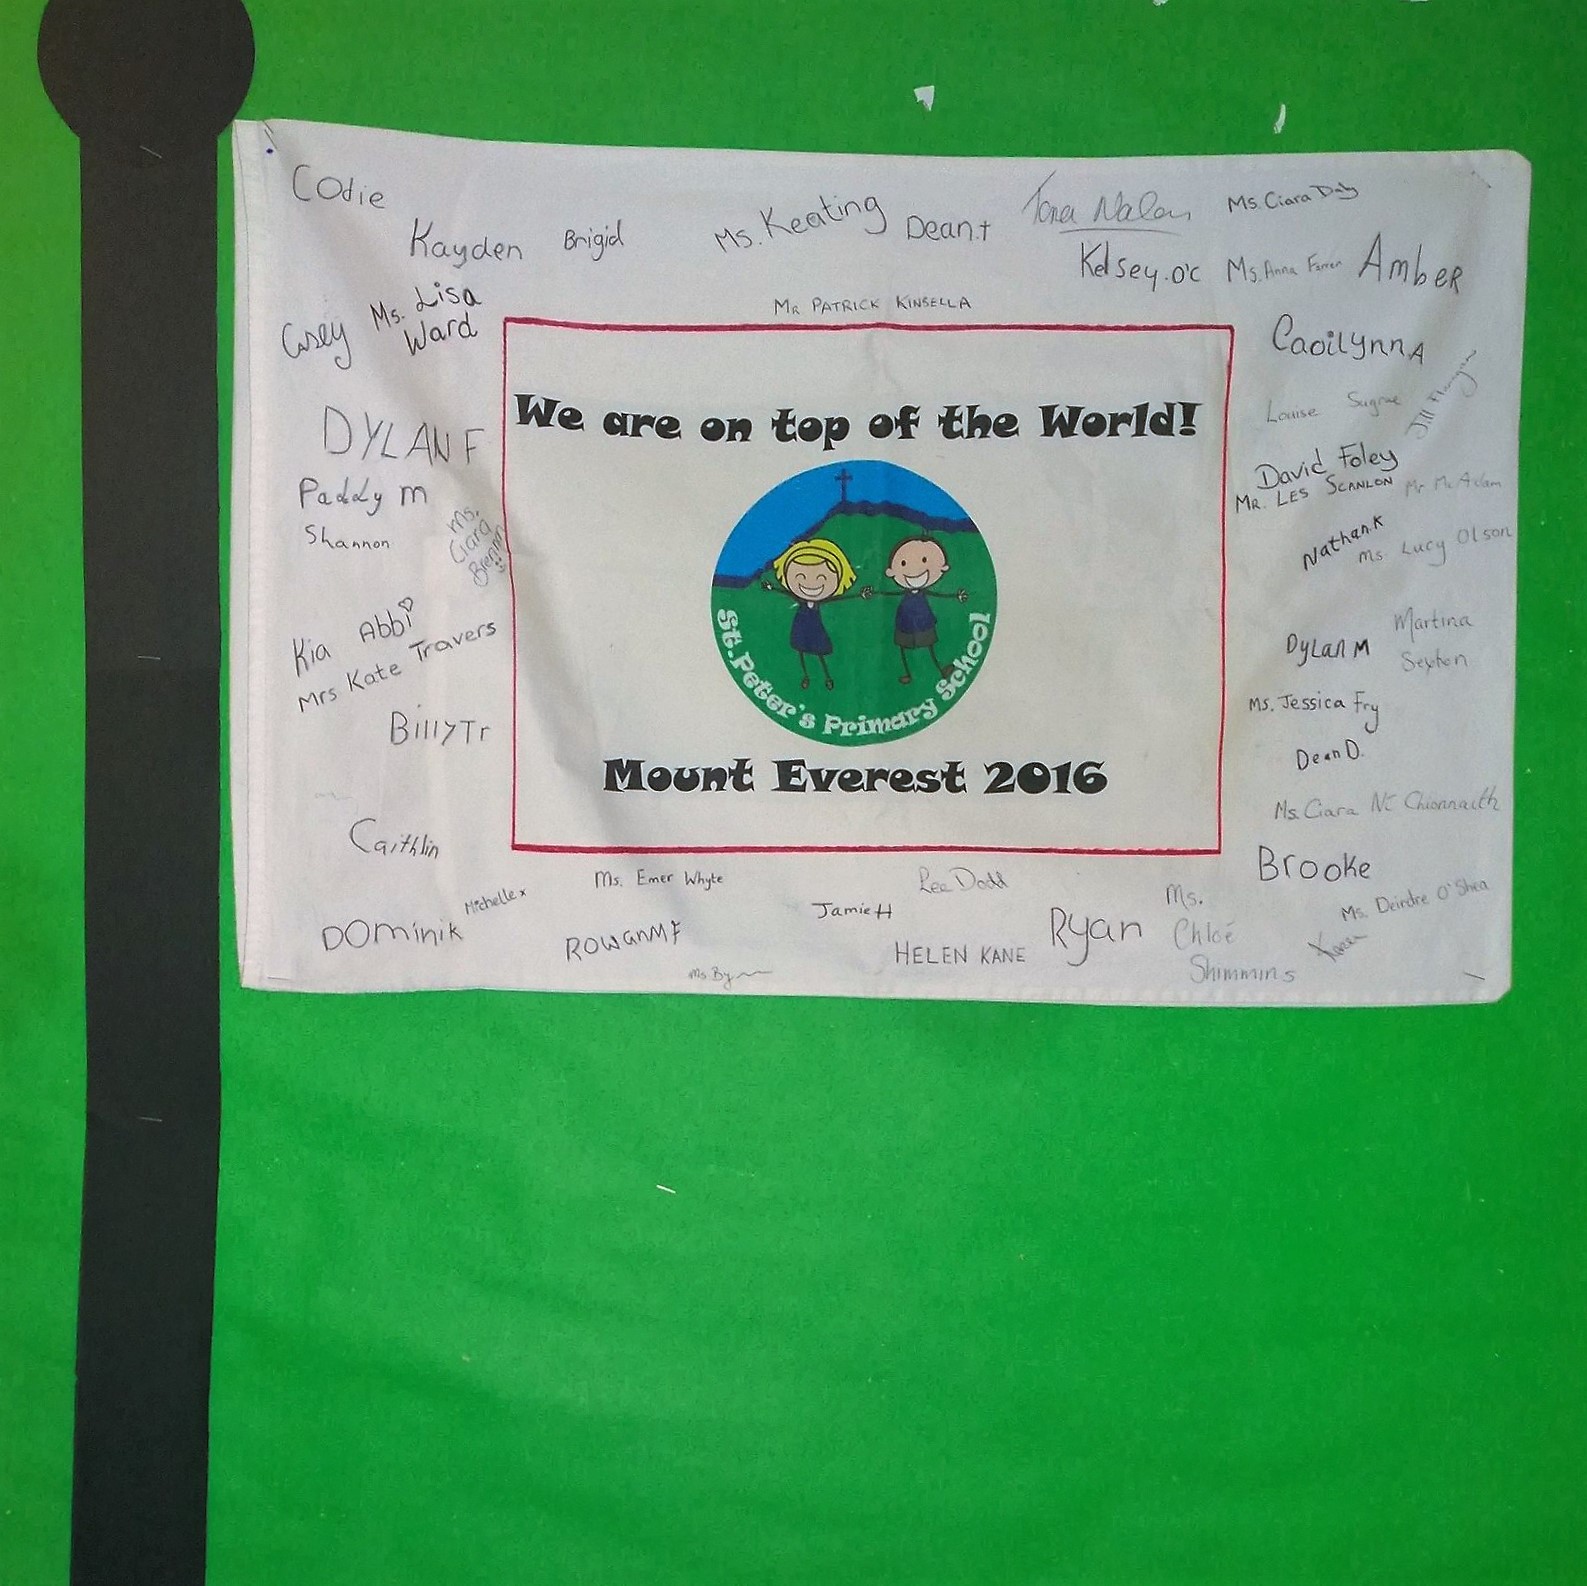 Codie
Kayden
Brigid
Ms. Keating
Dean.t
Ms. Ciara Daly
Kelsey.o'c
Ms. Anna Farren
Amber
MR PATRICK KINSELLA
Casey
Ms. Lisa
Ward
Caoilynn A
Louise Sugrue
Jill Flanagan
DYLAN F
We are on top of the World!
David Foley
MR. LES SCANLON
Mr McAdam
Paddy m
Shannon
Ms.
Ciara
Brennan
Nathan.K
Ms. Lucy Olson
Kia
Abbi
Mrs Kate Travers
St. Peter's Primary School
DyLan M
Martina
Sexton
Ms. Jessica Fry
BillyTr
Dean D.
Mount Everest 2016
Ms. Ciara Ní Chionnaith
Caithlin
Brooke
Ms. Emer Whyte
Lee Dodd
Michelle x
Jamie H
Ms.
Chloé
Shimmins
Ms. Deirdre O'Shea
Karen
DOminik
ROWanMF
HELEN KANE
Ryan